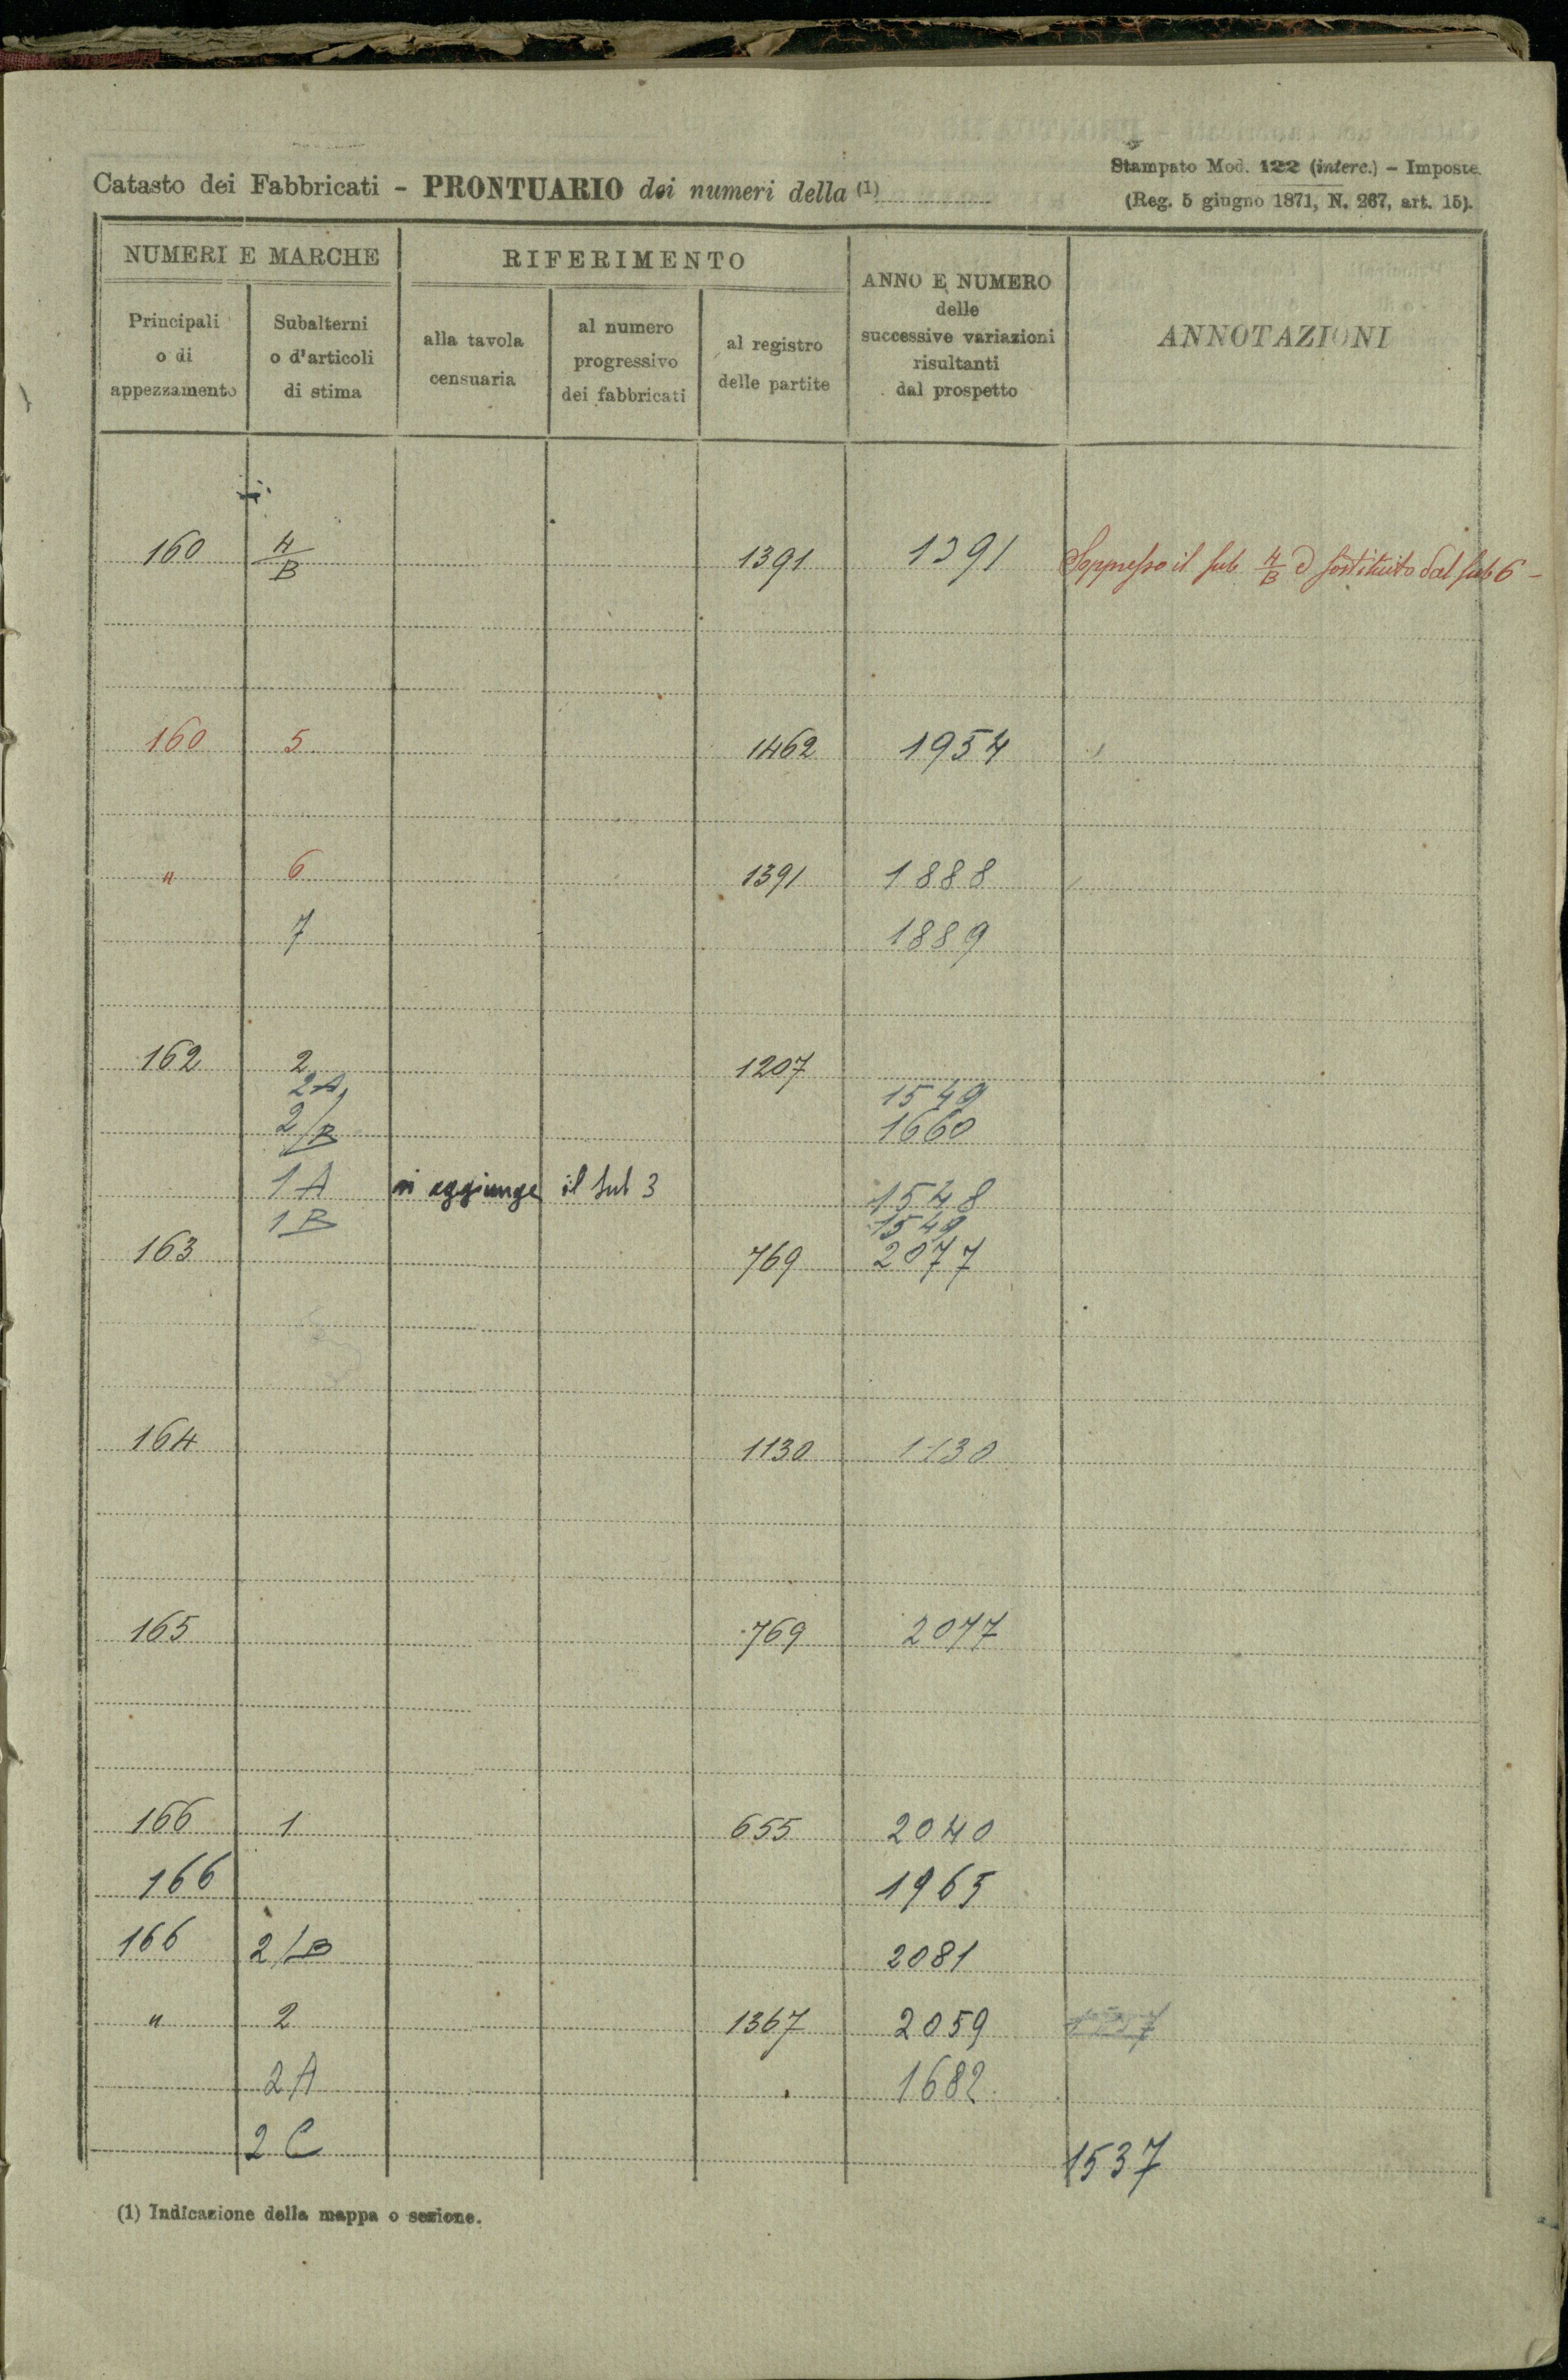 Catasto dei Fabbricati - PRONTUARIO dei numeri della (1)
Stampato Mod. 122 (interc.) - Imposte.
(Reg. 5 giugno 1871, N. 267, art. 15).
NUMERI E MARCHE
RIFERIMENTO
ANNO E NUMERO
delle
successive variazioni
risultanti
dal prospetto
ANNOTAZIONI
Principali
o di
appezzamento
Subalterni
o d'articoli
di stima
alla tavola
censuaria
al numero
progressivo
dei fabbricati
al registro
delle partite
160 4/B 1391 1391 Soppresso il sub 4/B sostituito dal sub 6 -
160 5 1462 1954
" 6 1391 1888
7 1889
162 2 1207
2A 1549
2/B 1660
1A si aggiunge il sub 3 1548
1B 1549
163 769 2077
164 1130 1130
165 769 2077
166 1 655 2040
166 1965
166 2/B 2081
" 2 1367 2059
2A 1682
2C 1537
(1) Indicazione della mappa o sezione.